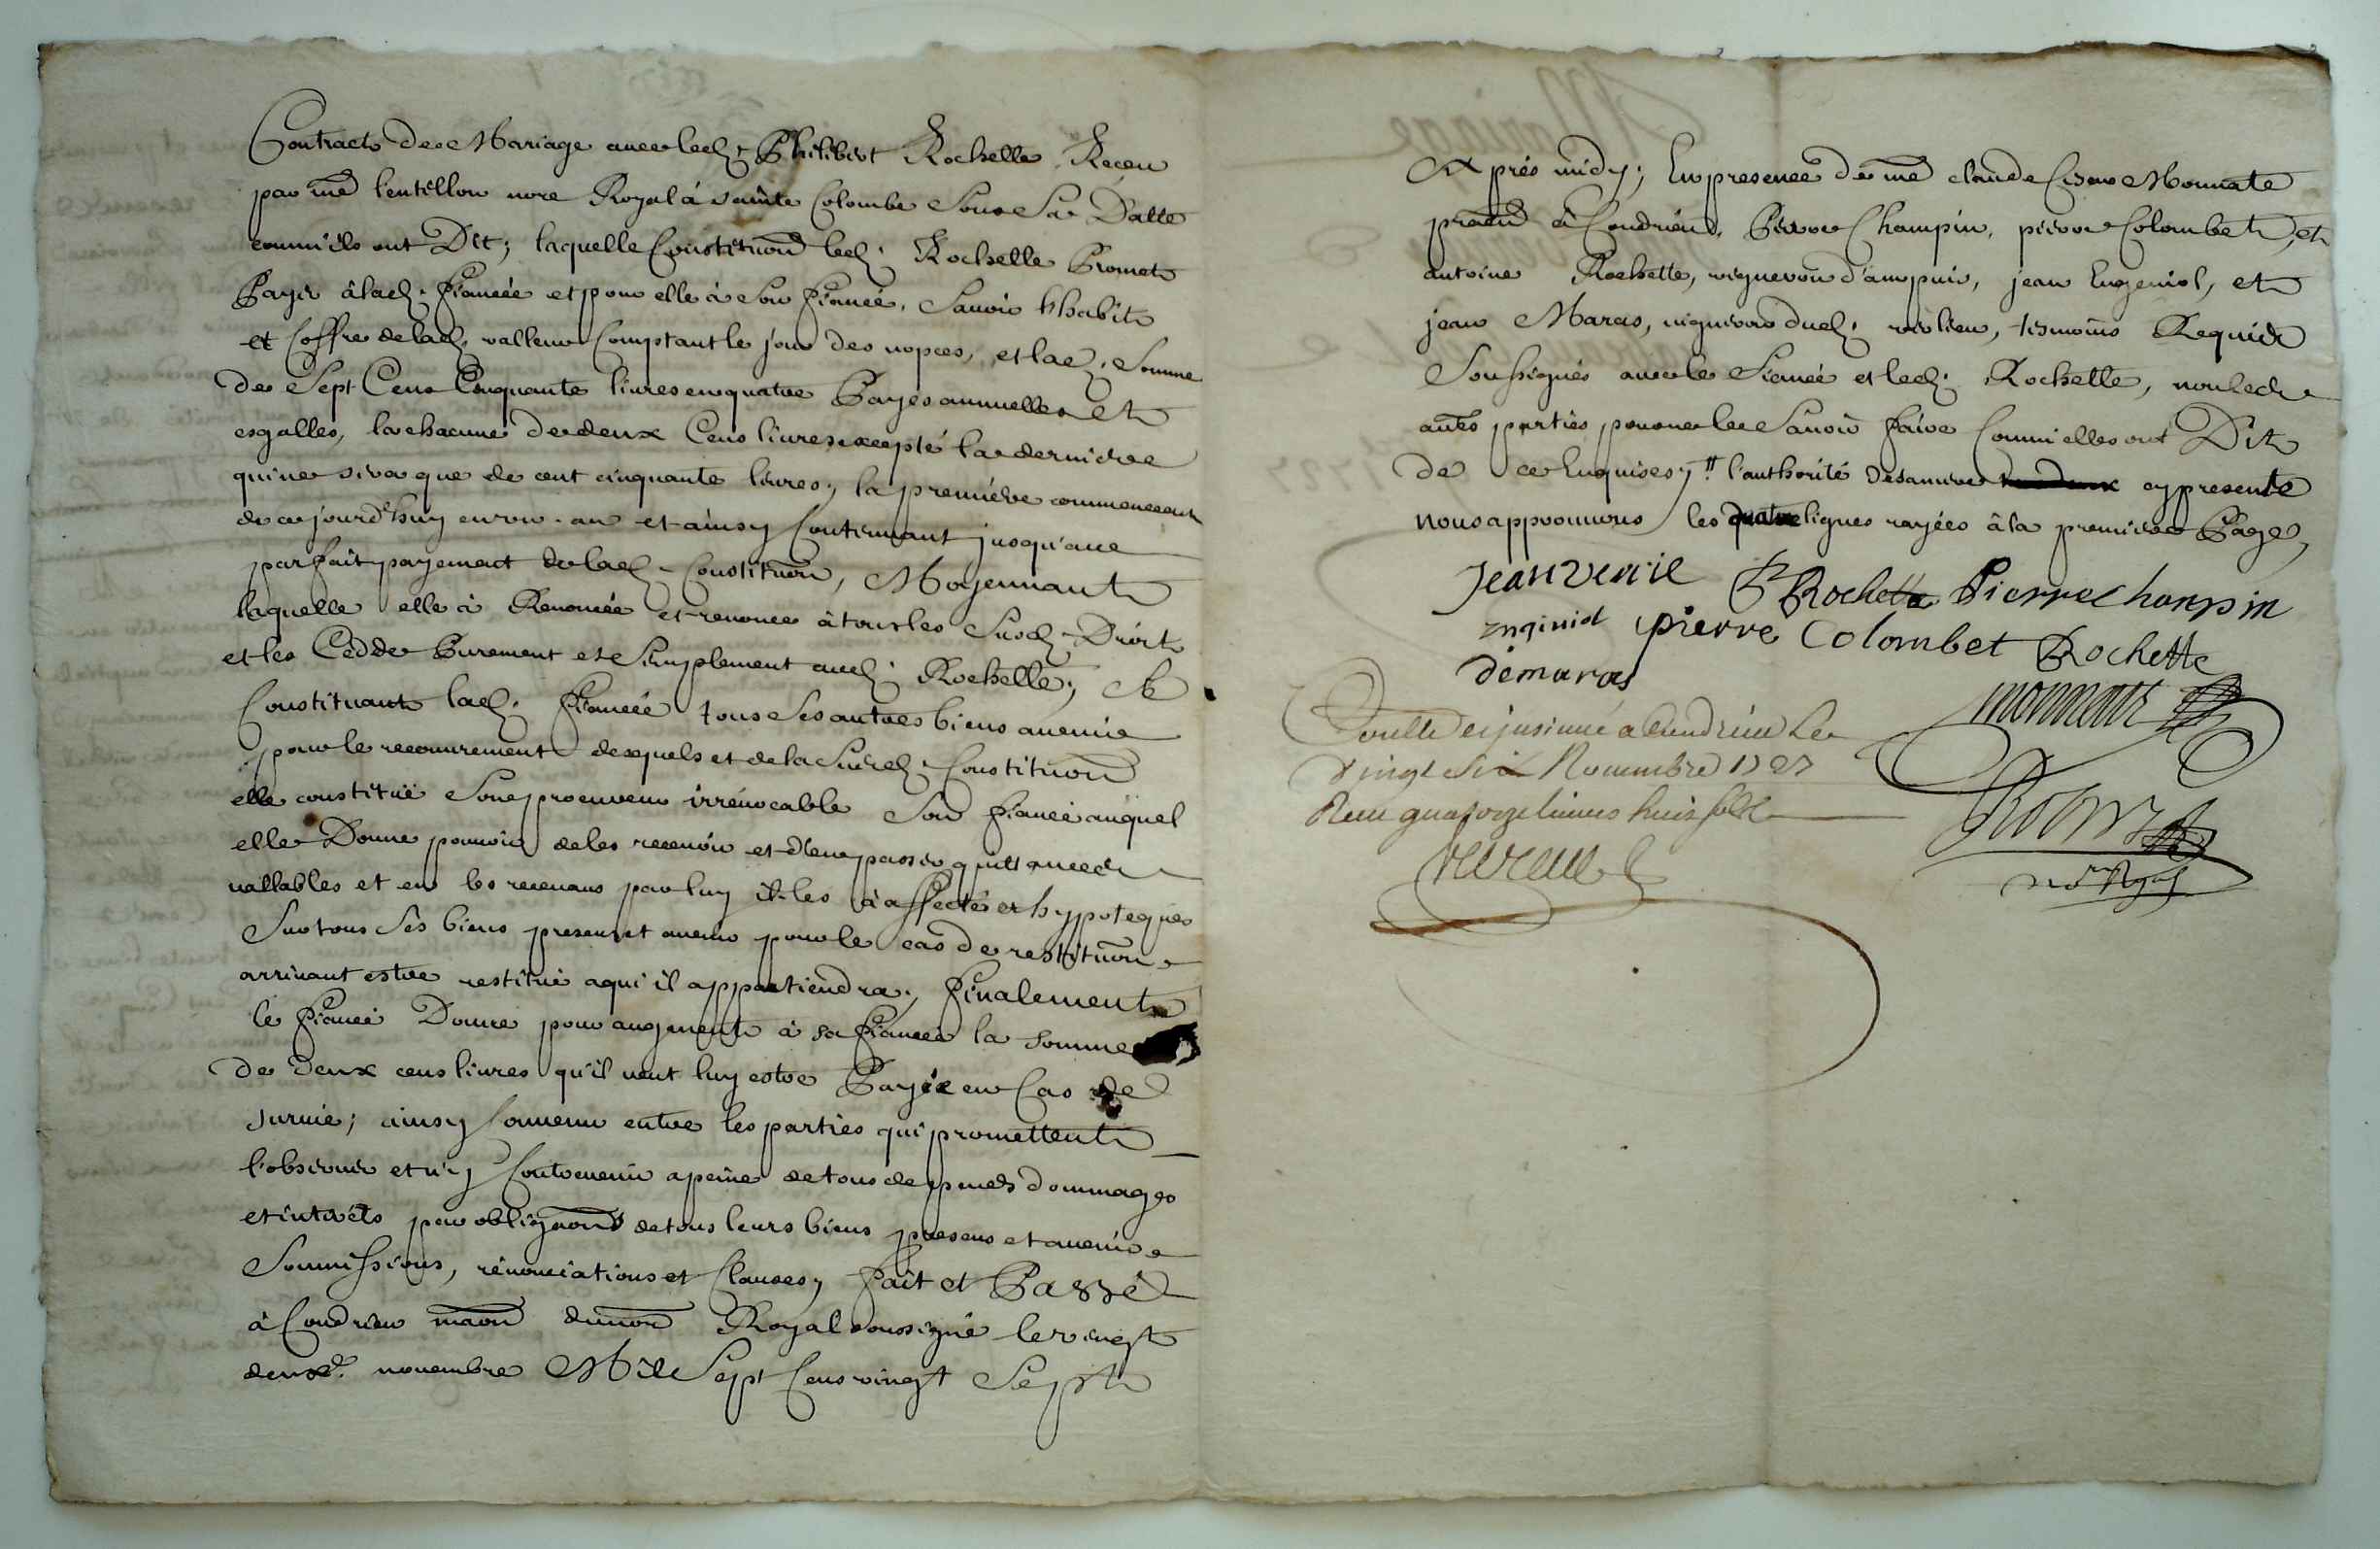 Contract de Mariage avec led. Philibert Rochette Receu
par me lentillon nore Royal à sainte Colombe Sous Sa Datte
comm'ils ont Dit; laquelle Constitution led. Rochette Promet
Payer à lad. fiancée et pour elle à Son fiancé, Savoir l'habit
et Coffre de lad. valleur Comptant le jour des nopces, et lad. Somme
de Sept Cens Cinquante livres en quatre Payes annuelles et
esgalles, la chacune de deux Cens livres excepté la derniere
qui ne sera que de cent cinquante livres; la première commenceant
de ce jourd'huy en un an et ainsy Continuant jusqu'au
parfait payement de lad. Constitution, Moyennant
laquelle elle à Renoncée et renonce à tous les Susd. Droits
et les Cedde Purement et Simplement aud. Rochette; Se
Constituant lad. fiancée tous Ses autres biens avenir
pour le recouvrement desquels et de la Susd. Constitution
elle constitüe Son procureur irrévocable Son fiancé auquel
elle Donne pouvoir de les recevoir et d'en passer quittances
vallables et en les recevans par luy il les à affectés et hypotequés
Sur tous Ses biens presens et avenir pour le cas de restitution
arrivant estre restitué a qui il appartiendra; finalement
le fiancé Donne pour augment à sa fiancée la somme
de deux cens livres qu'il veut luy estre Payée en Cas de
survie; ainsy Convenu entre les parties qui promettent
l'observer et n'y Contrevenir a peine de tous despends dommages
et intérêts par obligations de tous leurs biens presens et avenir
Soumissions, rénonciations et Clauses; fait et Passé
à Condrieu maon du nore Royal soussigné le vingt
deuxe. novembre Mil Sept Cens vingt Sept
Après midy; En presence de me claude Monnate
à Condrieu, Pierre Champin, pierre Colombet, et
antoine Rochette, vigneron d'ampuis, jean Engeniol, et
jean Maras, vigneron dud. lieu, tesmoins Requis
Soussignés avec le fiancé et led. Rochette, non les
autes parties pour ne le Savoir faire Comm'elles ont Dit
de ce Enquises; l'authorité cy presente
nous approuvons les quatre lignes rayées à la premiere Page,
Jean verzie P Rochette Pierre Champin
Enginiol pierre Colombet Rochette
démaras
monnate
Conllé et jnsinué a Condrieu Le
Vingt Six Novembre 1727
Receu quatorze livres huit solz
nore Royal